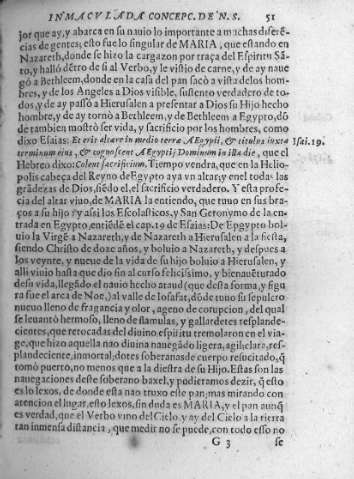 INMACVLADA CONCEPC. DE N. S. 51
jor que ay, y abarca en su nauio lo importante a muchas diferē-
cias de gentes; esto fue lo singular de MARIA, que estando en
Nazareth, donde se hizo la cargazon por traça del Espiritu Sā-
to, y hallò dētro de si al Verbo, y le vistio de carne, y de ay naue
gò a Bethleem, donde en la casa del pan sacò a vista de los hom-
bres, y de los Angeles a Dios visible, sustento verdadero de to-
dos, y de ay passò a Hierusalen a presentar a Dios su Hijo hecho
hombre, y de ay tornò a Bethleem, y de Bethleem a Egypto, dō
de tambien mostrò ser vida, y sacrificio por los hombres, como
dixo Esaias: Et erit altare in medio terræ Ægypti, & titulus iuxta Isai. 19.
terminum eius, & cognoscent Ægyptij Dominum in illa die, que el
Hebreo dixo: Colent sacrificium. Tiempo vendra, que en la Helio-
polis cabeça del Reyno de Egypto aya vn altar, y en el todas las
grādezas de Dios, siēdo el, el sacrificio verdadero. Y esta profe-
cia del altar viuo, de MARIA la entiendo, que tuuo en sus bra-
ços a su hijo y assi los Escolasticos, y San Geronymo de la en-
trada en Egypto, entiēdē el cap. 19 de Esaias: De Egypto bol-
uio la Virgē a Nazareth, y de Nazareth a Hierusalen a la fiesta,
siendo Christo de doze años, y boluio a Nazareth, y despues a
los veynte, y nueue de la vida de su hijo boluio a Hierusalen, y
alli viuio hasta que dio fin al curso felicissimo, y bienauēturado
desu vida, llegādo el nauio hecho ataud (que desta forma, y figu
ra fue el arca de Noe,) al valle de Iosafat, dōde tuuo su sepulcro
nueuo lleno de fragancia y olor, ageno de corrupcion, del qual
se leuantò hermoso, lleno de flamulas, y gallardetes resplande-
cientes, que retocadas del diuino espiritu tremolaron en el via-
ge, que hizo aquella nao diuina nauegādo ligera, agil, clara, res-
plandeciente, inmortal; dotes soberanas de cuerpo resucitado, q̄
tomò puerto, no menos que a la diestra de su Hijo. Estas son las
nauegaciones deste soberano baxel, y pudieramos dezir, q̄ esto
es lo lexos, de donde esta nao truxo este pan; mas mirando con
atencion el lugar, esto lexos, sin duda es MARIA, y el pan aunq̄
es verdad, que el Verbo vino del Cielo y ay del Cielo a la tierra
tan inmensa distancia, que medir no se puede, con todo esso no
G 3 se